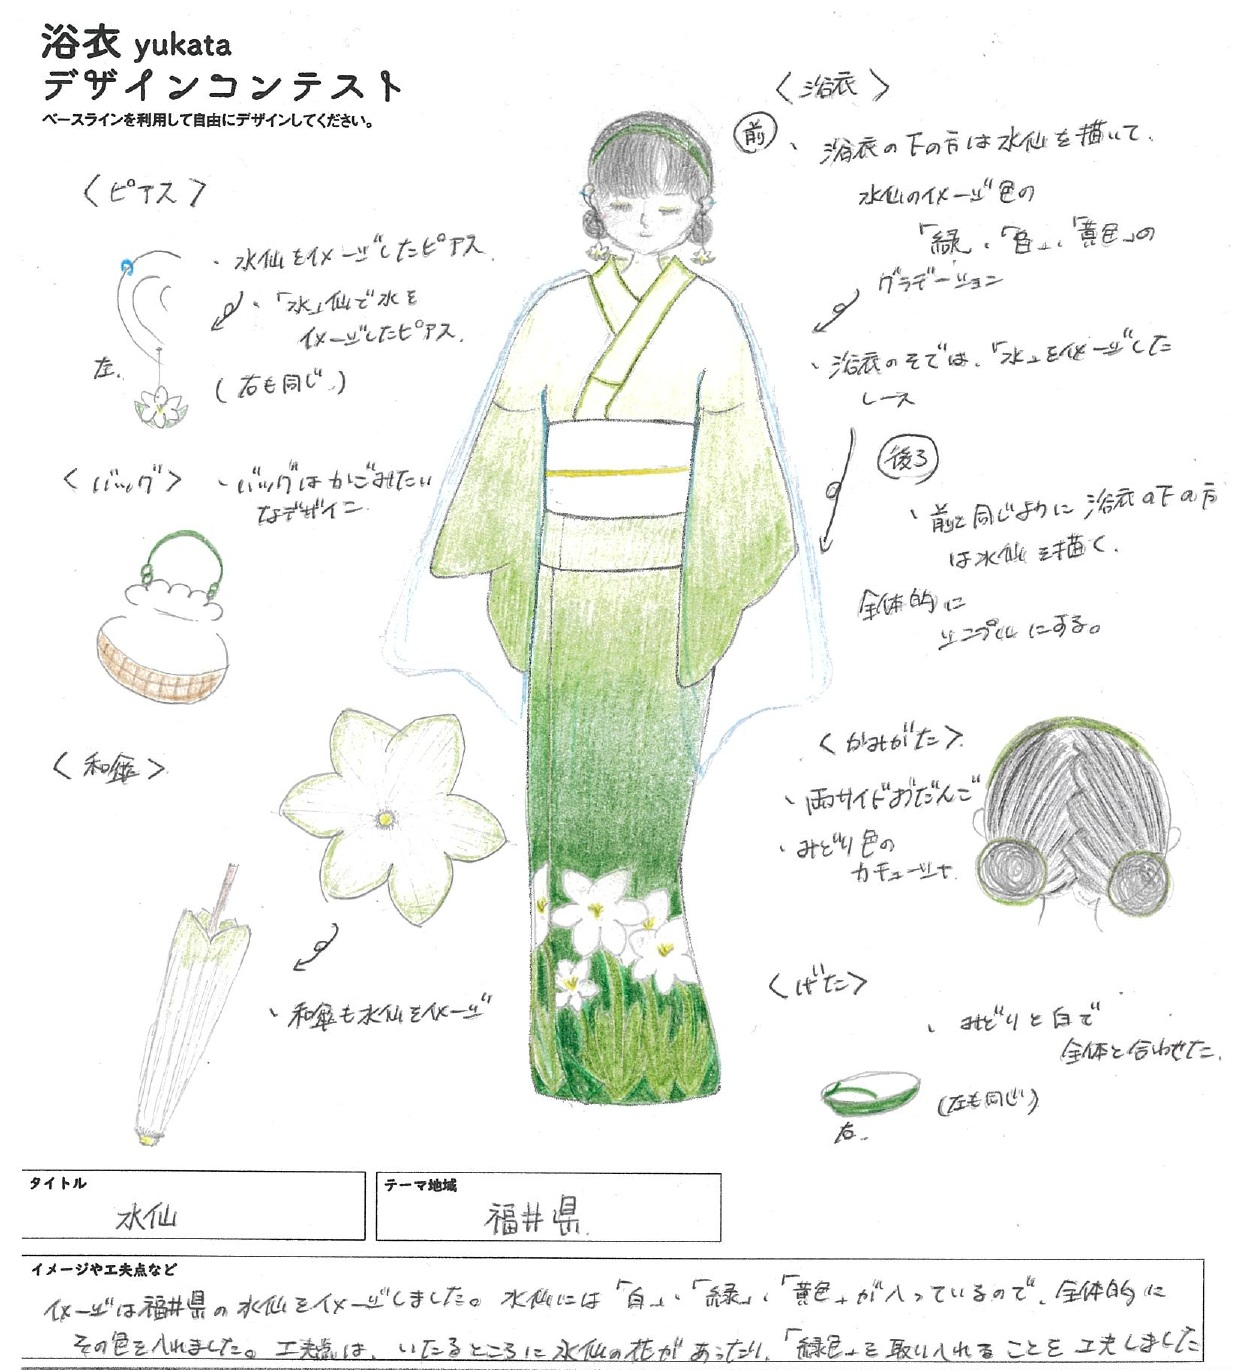 浴衣 yukata
デザインコンテスト
ベースラインを利用して自由にデザインしてください。
〈ピアス〉
・水仙をイメージしたピアス.
・「水」仙で水を
イメージしたピアス.
左.
(右も同じ.)
〈バッグ〉
、バッグはかごみたい
なデザイン.
〈和傘〉
、和傘も水仙をイメージ
〈浴衣〉
前
、浴衣の下の方は水仙を描いて.
水仙のイメージ色の
「緑」、「白」、「黄色」の
グラデーション
、浴衣のそでは、「水」をイメージした
レース
後ろ
、前と同じように浴衣の下の方
は水仙を描く.
全体的に
シンプルにする。
〈かみがた〉
、両サイドおだんご
、みどり色の
カチューシャ.
〈げた〉
、みどりと白で
全体と合わせた.
(左も同じ)
右.
タイトル
水仙
テーマ地域
福井県.
イメージや工夫点など
イメージは福井県の水仙をイメージしました。水仙には「白」、「緑」、「黄色」が入っているので、全体的に
その色を入れました。工夫点は、いたるところに水仙の花があったり、「緑色」を取り入れることを工夫しました